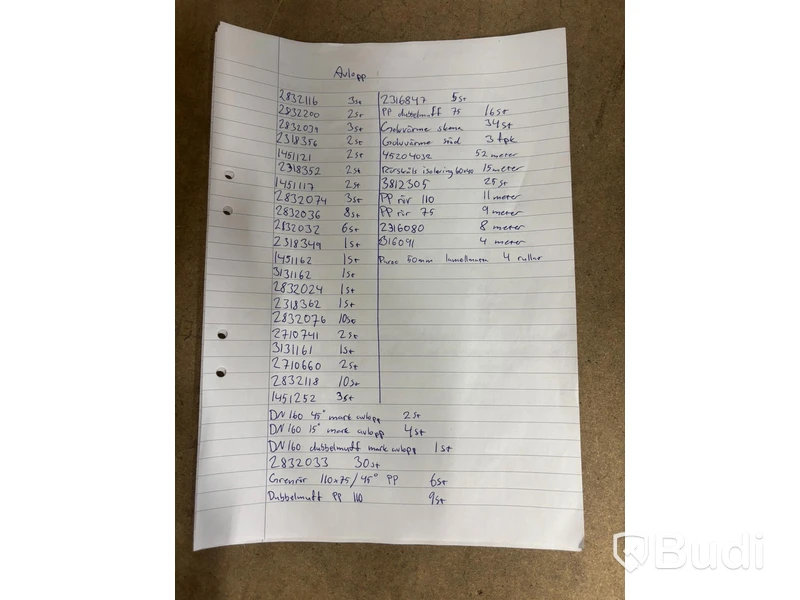 Avlopp
2832116 3st
2832200 2st
2832039 3st
2318356 2st
1451121 2st
2318352 2st
1451117 2st
2832074 3st
2832036 8st
2832032 6st
2318349 1st
1451162 1st
3131162 1st
2832024 1st
2318362 1st
2832076 10st
2710741 2st
3131161 1st
2710660 2st
2832118 10st
1451252 3st
2316847 5st
PP dubbelmuff 75 16st
Golvvärme skena 34st
Golvvärme stöd 3 fpk
45204032 52 meter
Rörskåls isolering 15 meter
3812305 25st
PP rör 110 11 meter
PP rör 75 9 meter
2316080 8 meter
2316091 4 meter
Paroc 50mm lamellmatta 4 rullar
DN 160 45° mark avlopp 2st
DN 160 15° mark avlopp 4st
DN 160 dubbelmuff mark avlopp 1st
2832033 30st
Grenrör 110x75/45° PP 6st
Dubbelmuff PP 110 9st
Budi